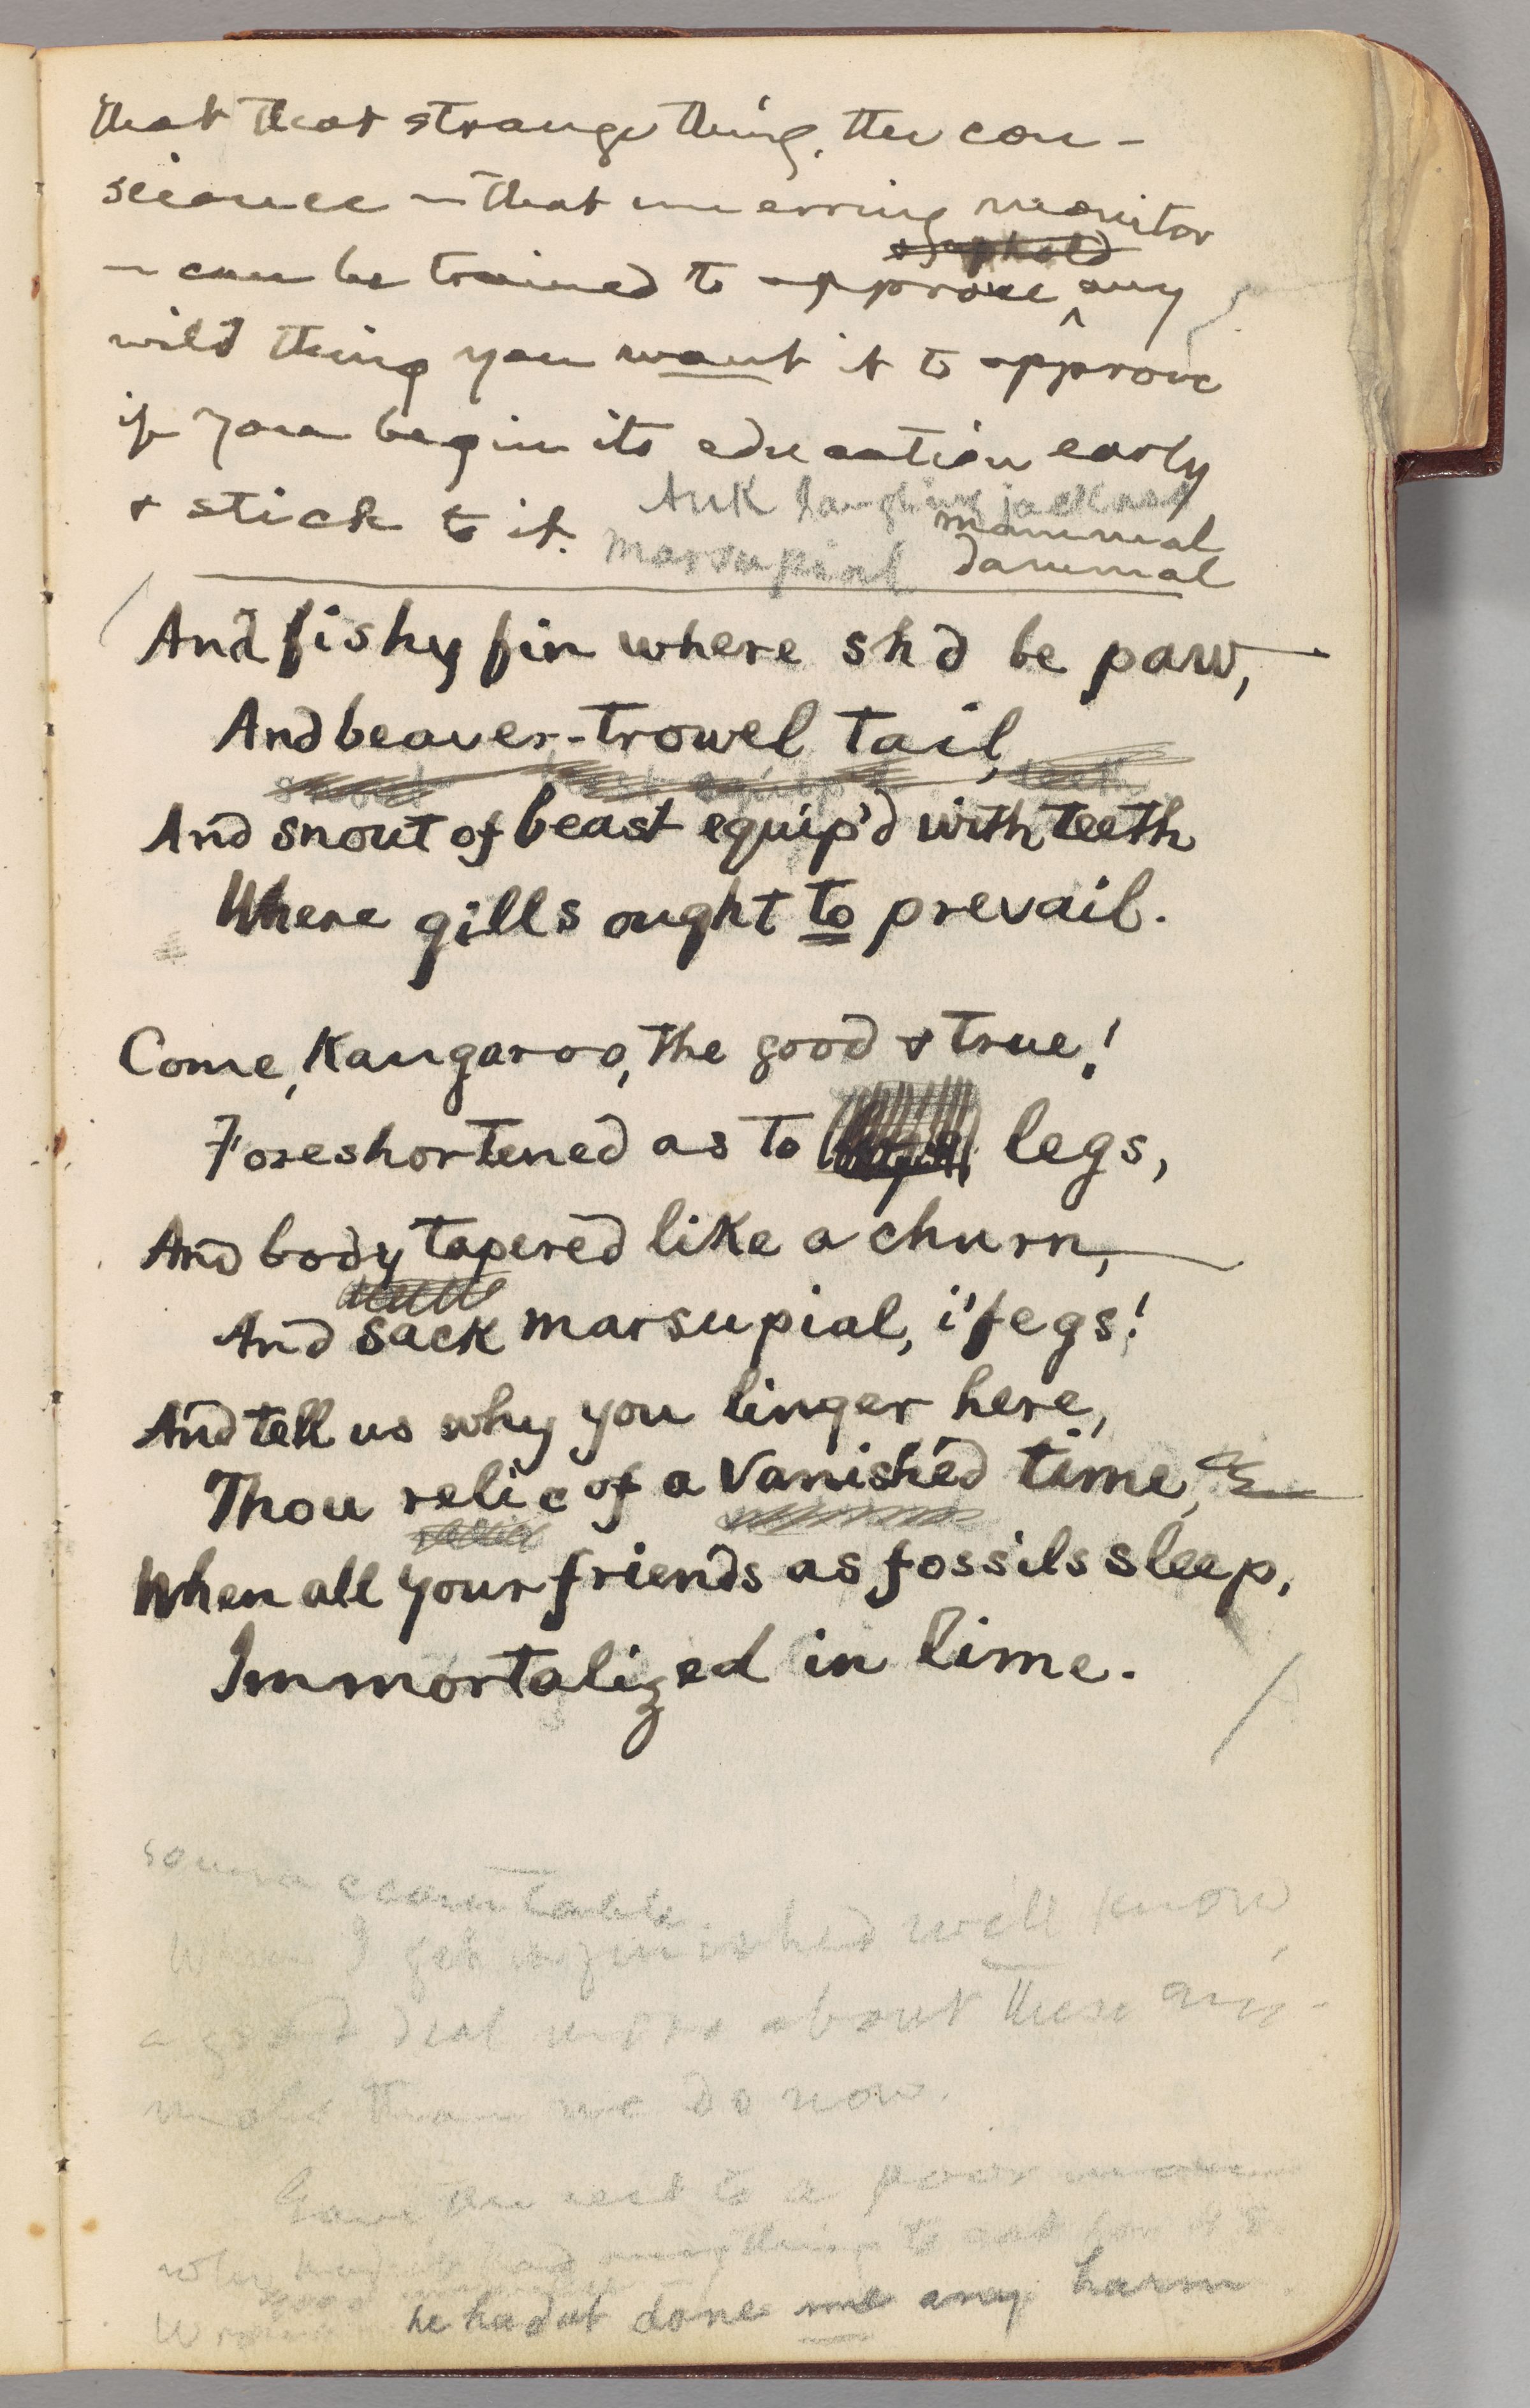 that that strange thing, the con-
science — that unerring monitor
— can be trained to approve any
wild thing you want it to approve
if you begin its education early
& stick to it.
Auk laughing jackass
mammal
marsupial dammal
And fishy fin where sh'd be paw,—
And beaver-trowel tail,
And snout of beast equip'd with teeth
Where gills ought to prevail.
Come, Kangaroo, the good & true!
Foreshortened as to legs,
And body tapered like a churn,—
And sack marsupial, i'fegs!
And tell us why you linger here,
Thou relic of a vanished time,
When all your friends as fossils sleep,
Immortalized in lime.
When I get finished we'll know
a good deal more about these ani-
mals than we do now.
Gave the rest to a poor
anything to eat for
he hadnt done me any harm